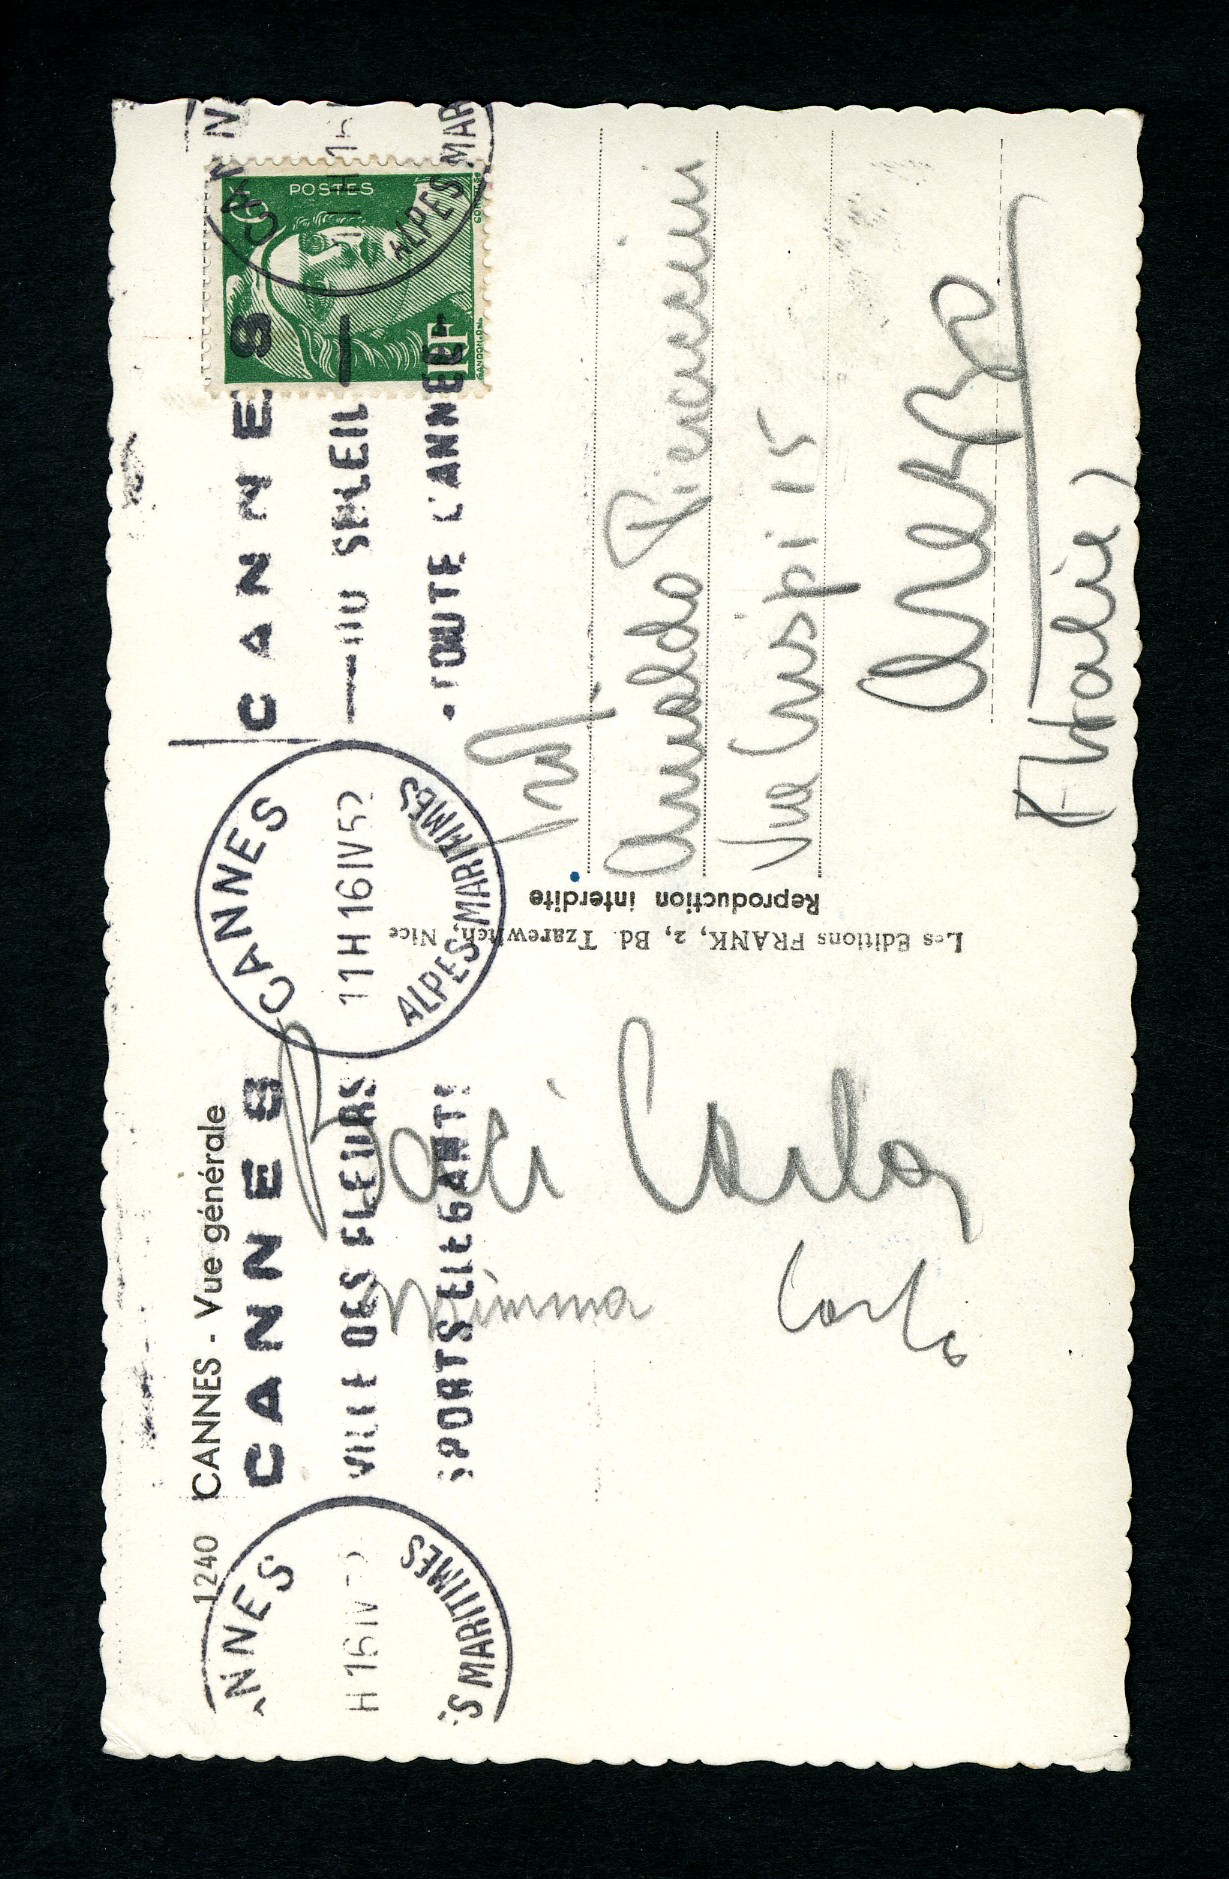 1240 CANNES - Vue générale
CANNES
VILLE DES FLEURS
SPORTS ELEGANTS
CANNES
11H 16 IV 52
ALPES-MARITIMES
CANNES
DU SOLEIL
TOUTE L'ANNEE
NNES
H 16 IV 52
ES MARITIMES
CANN
ALPES MAR
POSTES
6F
RF
GANDON
Baci Carla
Mimma Carlo
Les Editions FRANK, 2, Bd. Tzarewitch, Nice
Reproduction interdite
Arnaldo Pieraccini
Via Crispi 15
Arezzo
(Italie)